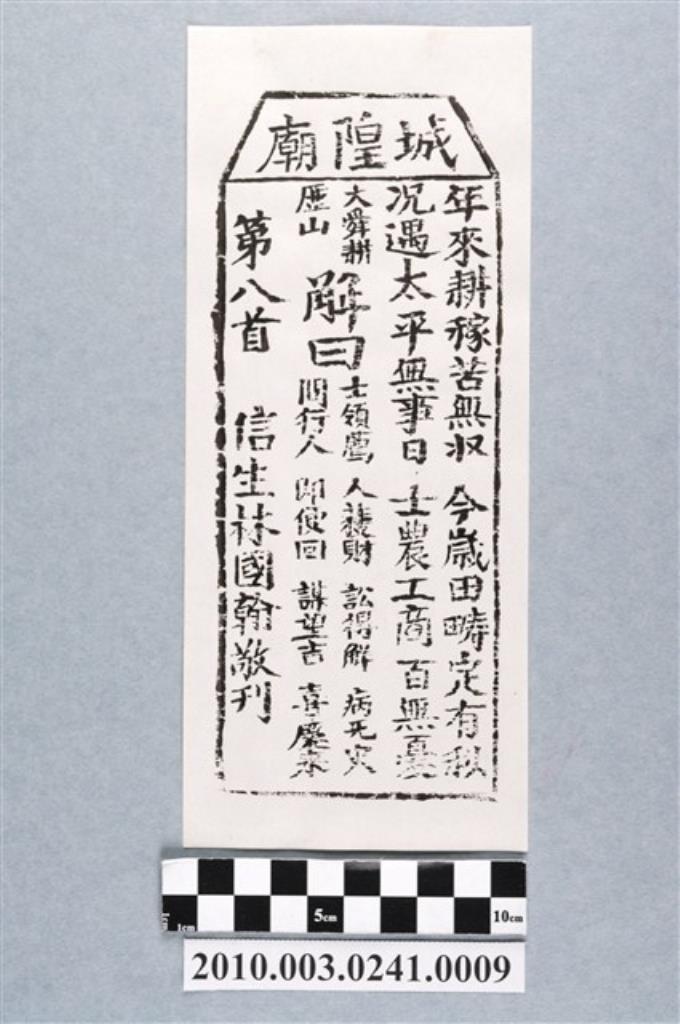 城隍廟
年來耕稼苦無收 今歲田疇定有秋
況遇太平無事日 士農工商百無憂
大舜耕歷山
解曰
士領薦 人獲財 訟得解 病无災
問行人 即便回 謀望吉 喜慶來
第八首 信生林國翰敬刊
5cm
10cm
1cm
2010.003.0241.0009